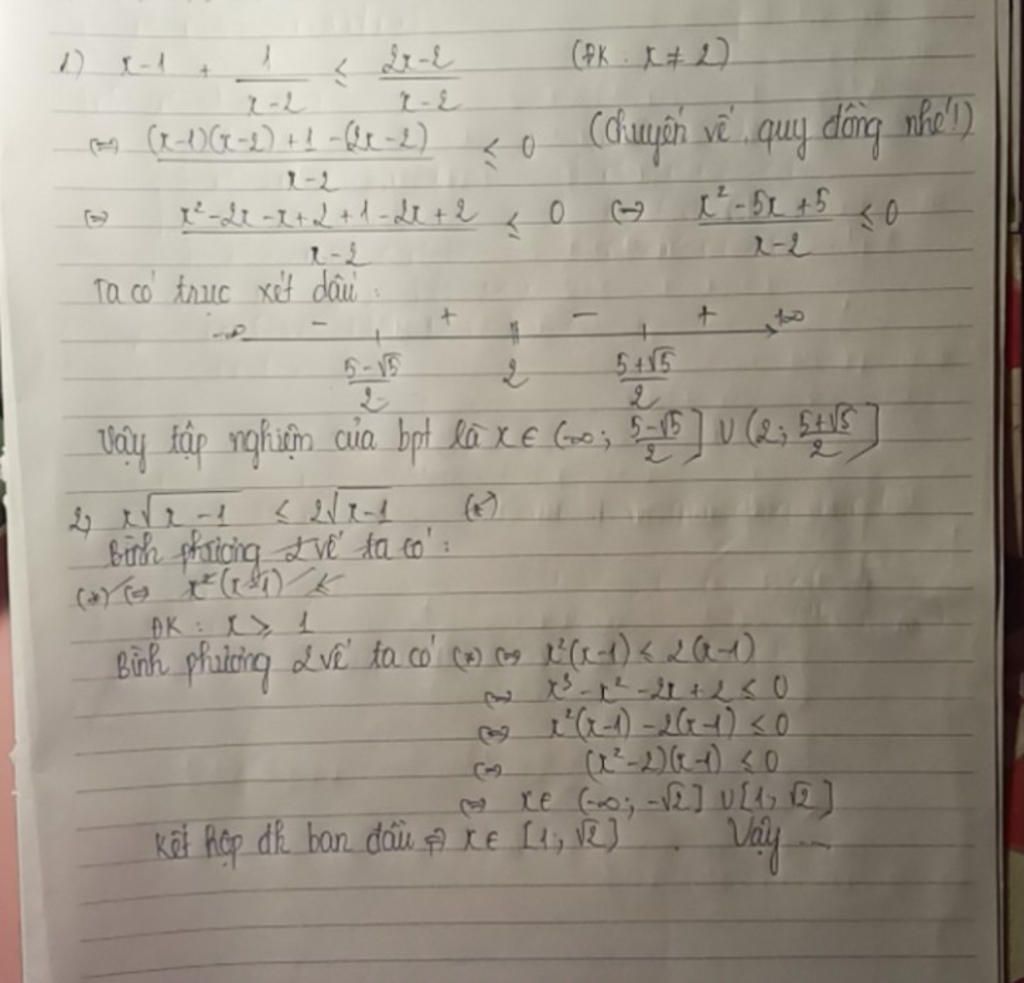 1) x-1 + 1/(x-2) ≤ (2x-2)/(x-2) (ĐK: x ≠ 2)
⇔ ((x-1)(x-2)+1-(2x-2))/(x-2) ≤ 0 (chuyển vế, quy đồng nhé!)
⇔ (x²-2x-x+2+1-2x+2)/(x-2) ≤ 0 ⇔ (x²-5x+5)/(x-2) ≤ 0
Ta có trục xét dấu:
-∞ - + - + +∞
(5-√5)/2 2 (5+√5)/2
Vậy tập nghiệm của bpt là x ∈ (-∞; (5-√5)/2] ∪ (2; (5+√5)/2]
2, x√(x-1) ≤ 2√(x-1) (*)
Bình phương 2 vế ta có:
(*) ⇔ x²(x-1) ≤
ĐK: x ≥ 1
Bình phương 2 vế ta có (*) ⇔ x²(x-1) ≤ 2(x-1)
⇔ x³-x²-2x+2 ≤ 0
⇔ x²(x-1)-2(x-1) ≤ 0
⇔ (x²-2)(x-1) ≤ 0
⇔ x ∈ (-∞; -√2] ∪ [1; √2]
Kết hợp đk ban đầu ⇒ x ∈ [1; √2] . Vậy ...